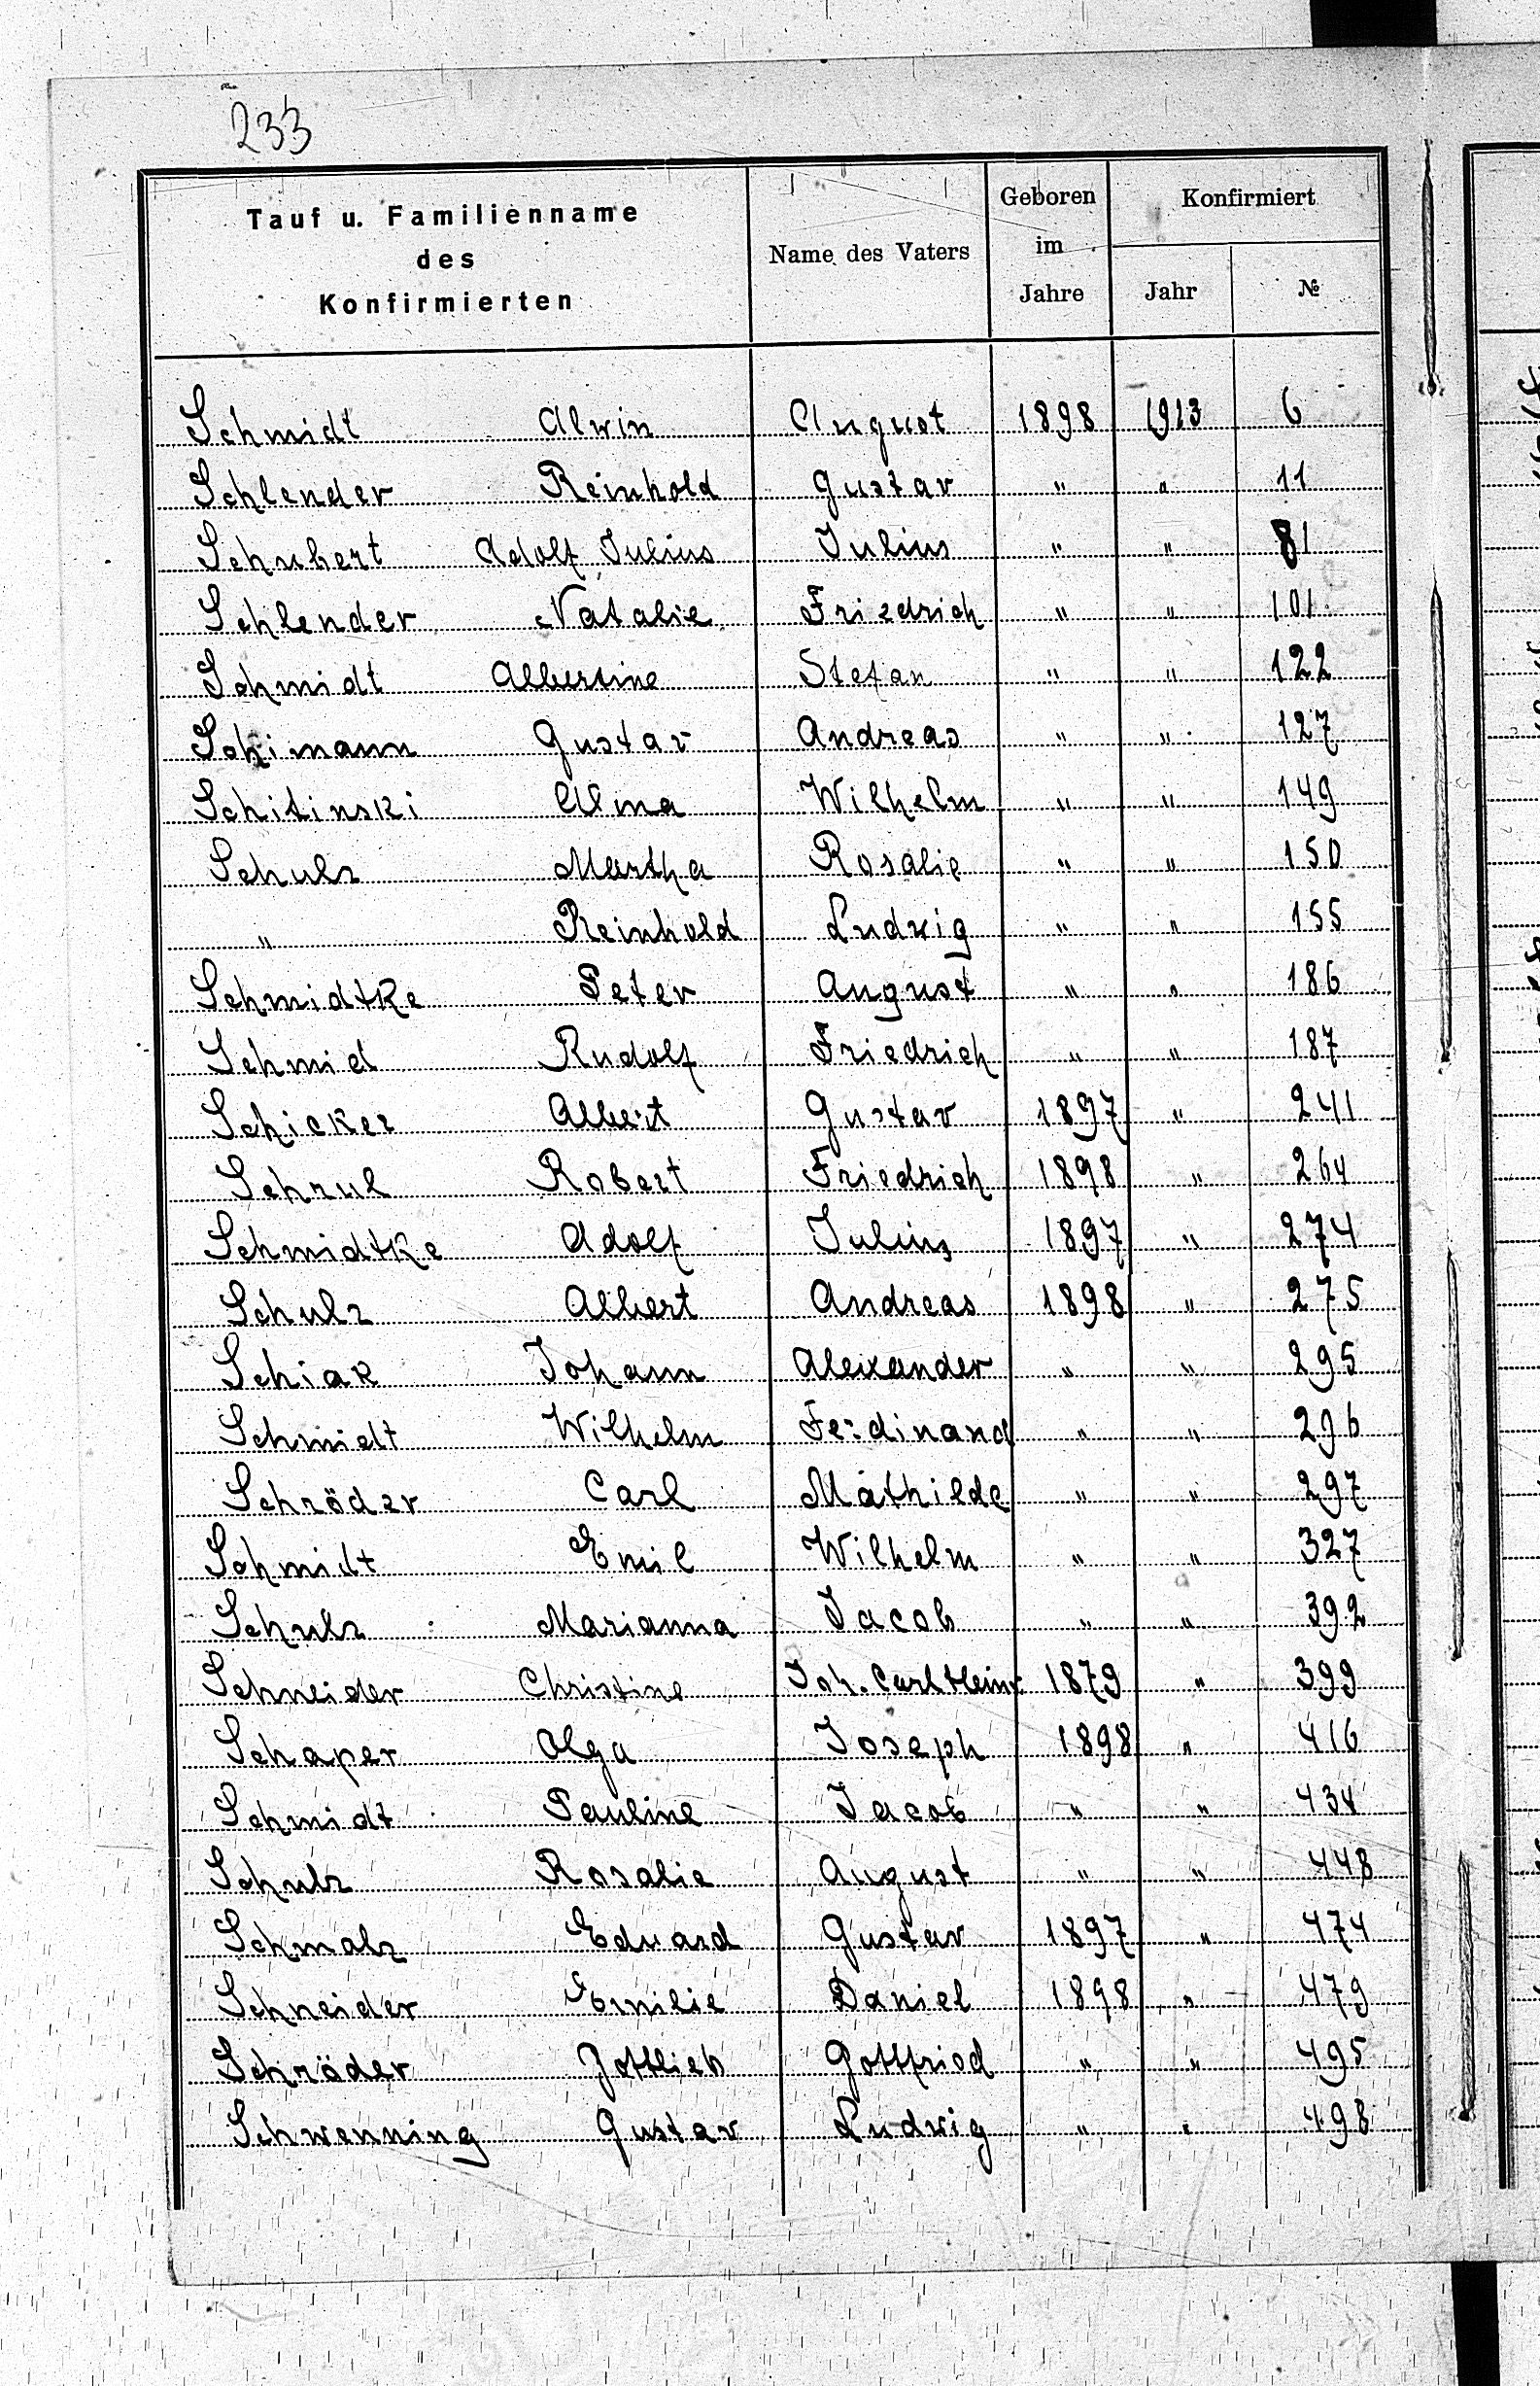 233
Tauf u. Familienname des Konfirmierten Name des Vaters Geboren im Jahre Konfirmiert Jahr №
Schmidt Alwin August 1898 1913 6
Schlender Reinhold Gustav " " 11
Schubert Adolf Julius Julius " " 81
Schlender Natalie Friedrich " " 101
Schmidt Albertine Stefan " " 122
Schimann Gustav Andreas " " 127
Schitinski Alma Wilhelm " " 149
Schulz Martha Rosalie " " 150
" Reinhold Ludwig " " 155
Schmidtke Peter August " " 186
Schmid Rudolf Friedrich " " 187
Schicker Albert Gustav 1897 " 241
Schrul Robert Friedrich 1898 " 264
Schmidtke Adolf Julius 1897 " 274
Schulz Albert Andreas 1898 " 275
Schiak Johann Alexander " " 295
Schmidt Wilhelm Ferdinand " " 296
Schröder Carl Mathilde " " 297
Schmidt Emil Wilhelm " " 327
Schulz Marianna Jacob " " 392
Schneider Christine Joh. Carl Heinr 1879 " 399
Schaper Olga Joseph 1898 " 416
Schmidt Pauline Jacob " " 434
Schulz Rosalie August " " 448
Schmalz Eduard Gustav 1897 " 474
Schneider Emilie Daniel 1898 " 479
Schröder Gottlieb Gottfried " " 495
Schwenning Gustav Ludwig " " 498